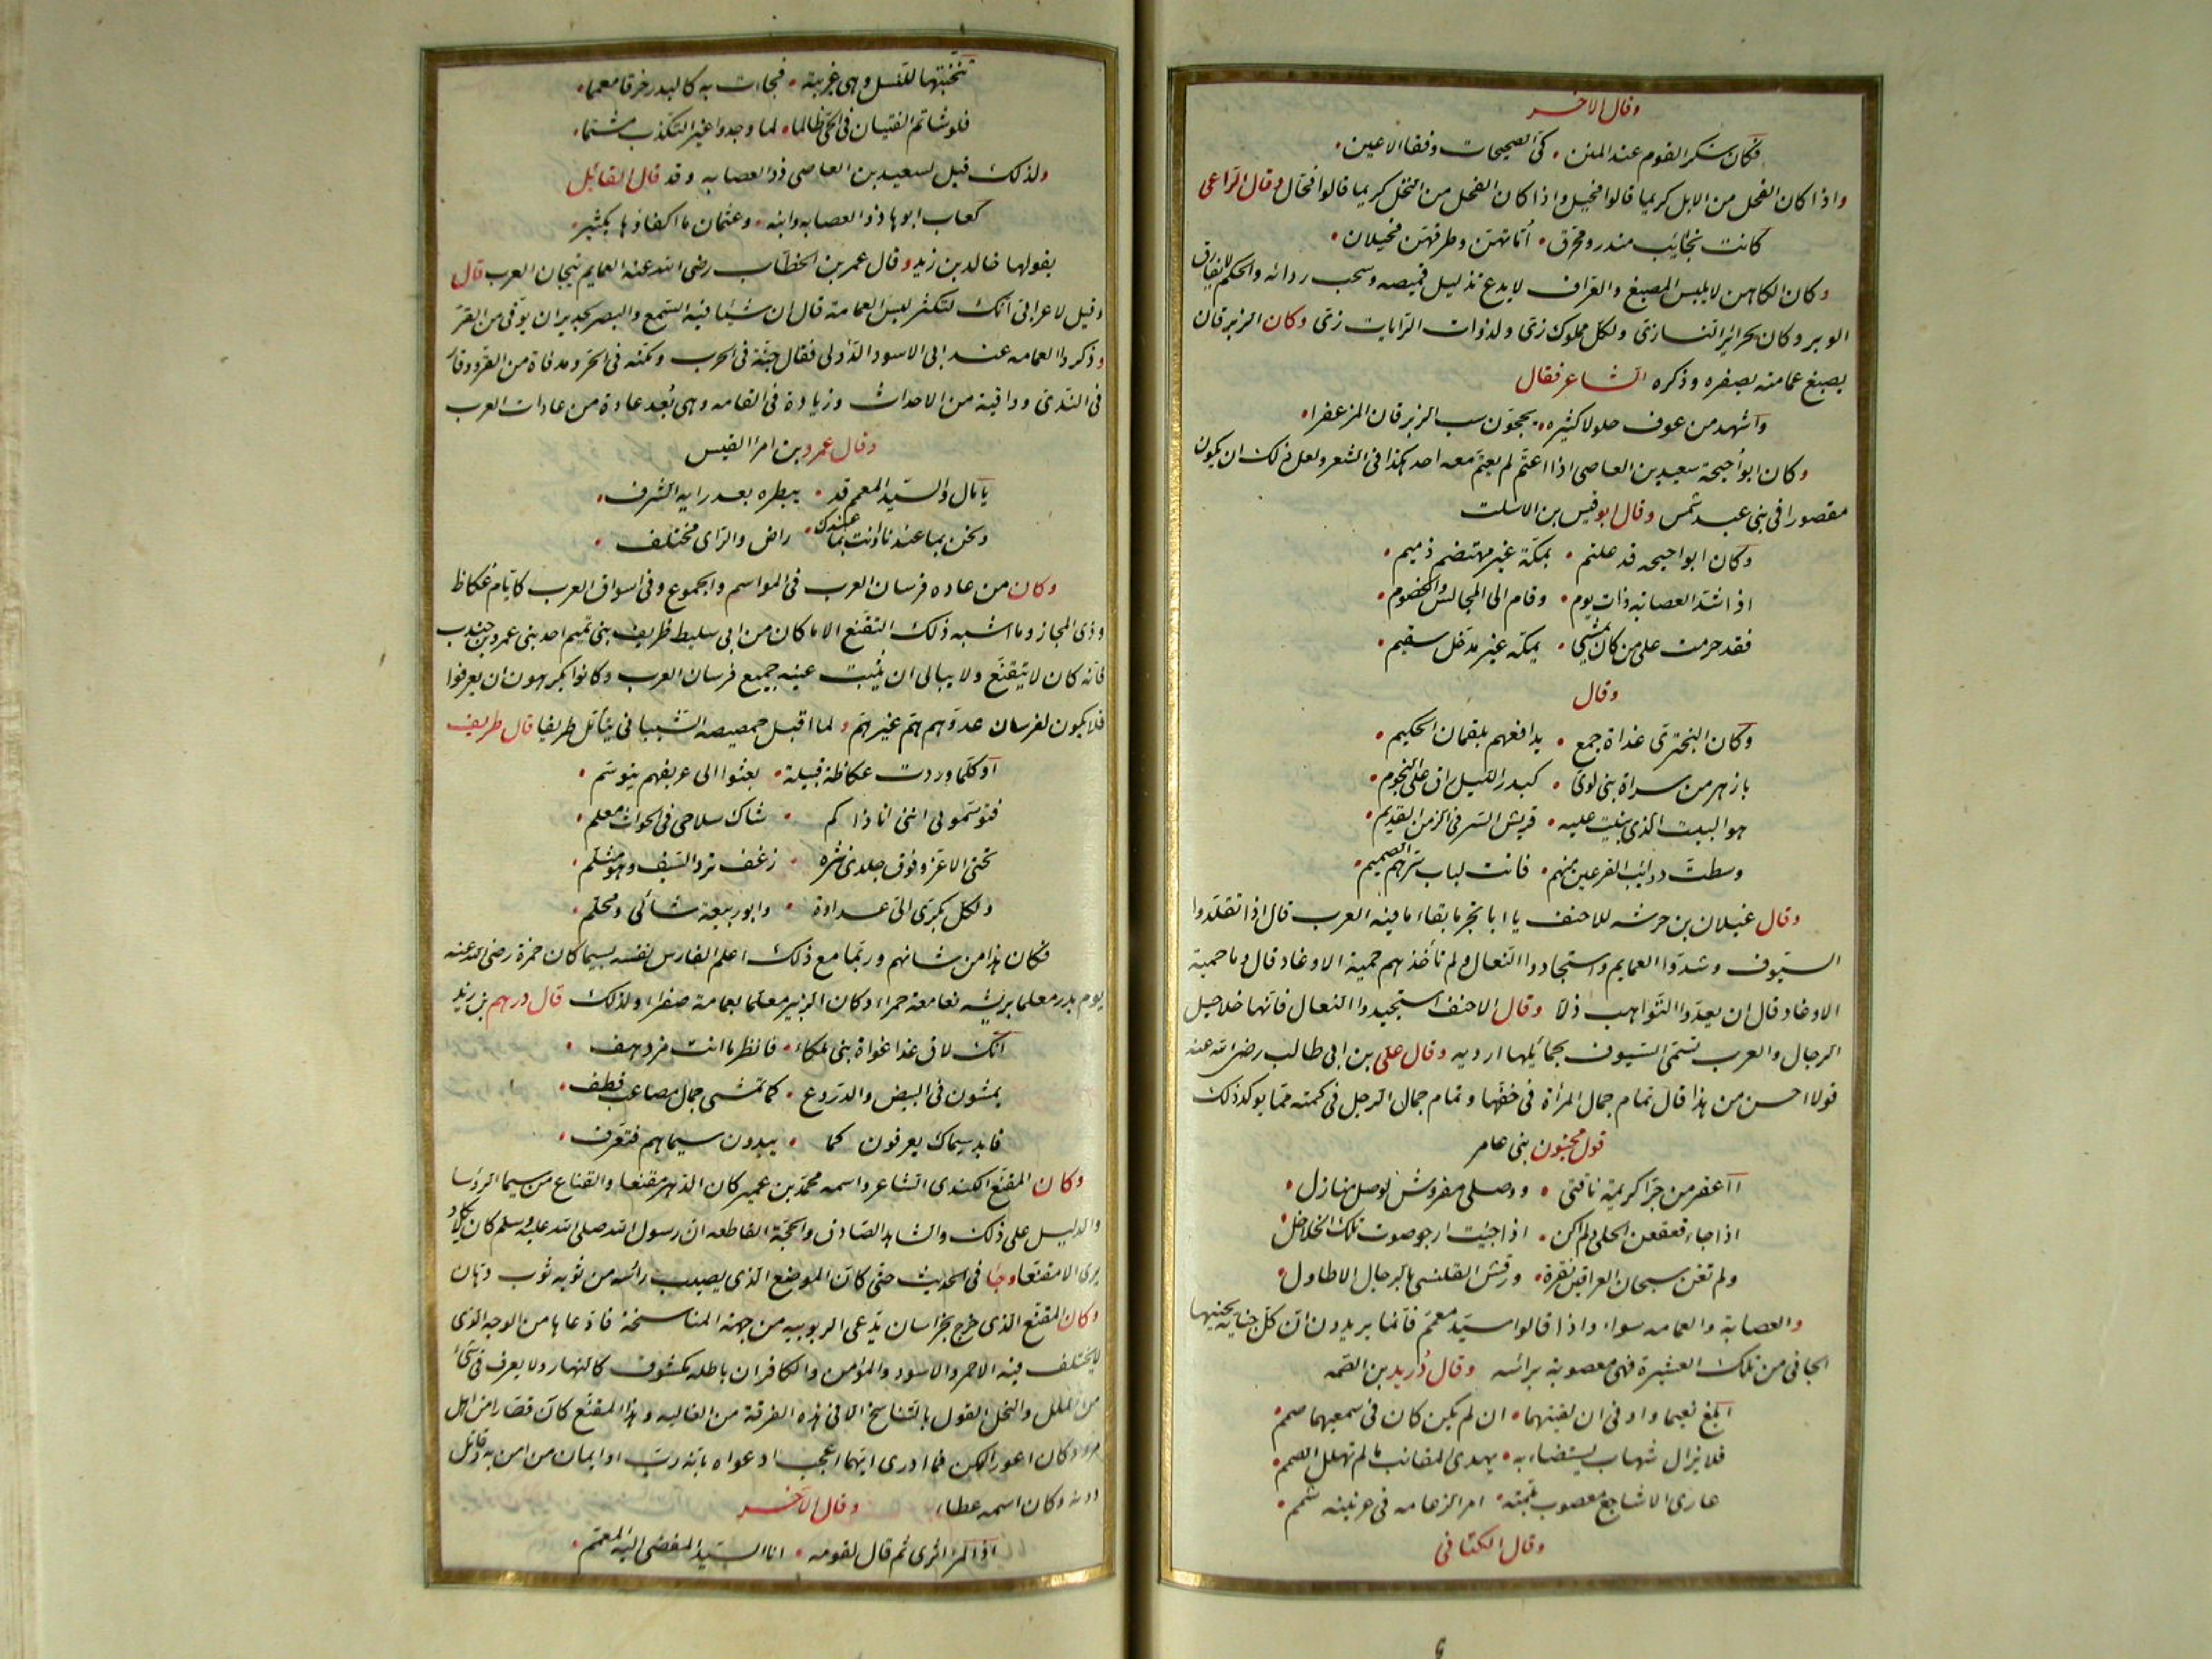 وقال الاخر
فكان سكر القوم عند المنن • كى الصحيحات وفقا الاعين •
واذا كان الفحل من الابل كريما قالوا فحيل واذا كان الفحل من النخل كريما قالوا فحال وقال الراعى
كانت نجايب منذر ومحرق • أماتهن وطرقهن فحيلان •
وكان الكاهن لا يلبس المصبغ والعراف لا يدع تذليل قميصه وسحب ردائه والحكم لا يفارق
الوبر وكان لحرائر النسا زى ولكل مملوك زى ولذوات الرايات زى وكان الزبرقان
يصبغ عمامته بصفره وذكره الشاعر فقال
وأشهد من عوف حلولا كثيره • يحجون سب الزبرقان المزعفرا •
وكان ابو أحيحة سعيد بن العاصى اذا اعتم لم يعتم معه احد هكذا فى الشعر ولعل ذلك ان يكون
مقصورا فى بنى عبد شمس وقال ابو قيس بن الاسلت
وكان ابوا حيحه قد علتم • بمكة غير مهتضم ذميم •
اذا شد العصابة ذات يوم • وقام الى المجالس والخصوم •
فقد حرمت على من كان يمشى • بمكة غير مدخل سقيم •
وقال
وكان البخترى غداة جمع • يدافعهم بلقمان الحكيم •
بازهر من سراة بنى لوى • كبدر الليل راق على النجوم •
هو البيت الذى بنيت عليه • قريش السر فى الزمن القديم •
وسطت ذوائب الفرعين منهم • فانت لباب سرهم الصميم •
وقال غيلان بن خرشه للاحنف يا ابا بحر ما بقاء ما فيه العرب قال اذا تقلدوا
السيوف وشدوا العمايم واستجادوا النعال ولم تأخذهم حمية الاوغاد قال وما حمية
الاوغاد قال ان يعدوا التواهب ذلا وقال الاحنف استجيدوا النعال فانها خلاخيل
الرجال والعرب تسمى السيوف بحمائلها ارديه وقال على بن ابى طالب رضى الله عنه
قولا احسن من هذا قال تمام جمال المرأة فى خفها وتمام جمال الرجل فى كمته مما يوكد ذلك
قول مجنون بنى عامر
أأعقر من جرا كريمة ناقتى • ووصلى مفروش لوصل منازل •
اذا جاء قعقعن الحلى ولم اكن • اذا جيت ارجو صوت تلك الخلاخل •
ولم تغن سيحان العراقين نقرة • ورقش القلنسى بالرجال الاطاول •
والعصابة والعمامه سواء واذا قالوا سيد معمم فانما يريدون ان كل جناية يجنيها
الجانى من تلك العشيرة فهى معصوبة برائسه وقال دريد بن الصمه
ابلغ نعيما واوفى ان لقيتهما • ان لم يكن كان فى سمعيهما صمم •
فلا يزال شهاب يستضاء به • يهدى المقانب ما لم تهلل الصمم •
عارى الاشاجع معصوب بلمته • امر الزعامه فى عرنينه شمم •
وقال الكنانى
تنخبتها للنسل وهى غريبة • فجات به كالبدر خرقا معمما •
فلو شاتم الفتيان فى الحى ظالما • لما وجدوا غير التكذب مشتما •
ولذلك قيل لسعيد بن العاصى ذو العصابه وقد قال القائل
كعاب ابوها ذو العصابه وابنه • وعثمان ما اكفاؤها بكثير •
يقولها خالد بن زيد وقال عمر بن الخطاب رضى الله عنه العمايم تيجان العرب قال
وقيل لاعرابى انك لتكثر لبس العمامة قال ان شيئا فيه السمع والبصر لجدير ان يوقى من القر
وذكروا العمامه عند ابى الاسود الدؤلى فقال جنة فى الحرب وكنه فى الحر ومدفاة من القر ووقار
فى الندى وواقية من الاحداث وزيادة فى القامه وهى بعد عادة من عادات العرب
وقال عمرو بن امرا القيس
يا مال والسيد المعمم قد • يبطره بعد رايه السرف •
ونحن بما عندنا وانت بما عندك • راض والراى مختلف •
وكان من عاده فرسان العرب فى المواسم والجموع وفى اسواق العرب كايام عكاظ
وذى المجاز وما اشبه ذلك التقنع الا ما كان من ابى سليط طريف بنى تميم احد بنى عمرو بن جندب
فانه كان لا يتقنع ولا يبالى ان يثبت عينه جميع فرسان العرب وكانوا يكرهون ان يعرفوا
فلا يكون لفرسان عدوهم هم غيرهم ولما اقبل حمصيصه الشيبانى يتأمل طريفا قال طريف
أو كلما وردت عكاظ قبيلة • بعثوا الى عريفهم يتوسم •
فتوسمونى اننى انا ذاكم • شاك سلاحى فى الحوادث معلم •
تحتى الاغر وفوق جلدى نثره • زغف ترد السيف وهو مثلم •
ولكل بكرى الى عداوة • وابو ربيعة شانى ومحلم •
فكان هذا من شانهم وربما مع ذلك اعلم الفارس نفسه بسيما كان حمزة رضى الله عنه
يوم بدر معلما بريشه نعامة حمراء وكان الزبير معلما بعمامة صفراء ولذلك قال درهم بن زيد
انك لاق غدا غواة بنى ملكاء • فانظر ما انت مزدهف •
يمشون فى البيض والدروع • كما تمشى جمال مصاعب قطف •
فابد سيماك يعرفون كما • يبدون سيماهم فتعرف •
وكان المقنع الكندى الشاعر واسمه محمد بن عمير كان الدهر مقنعا والقناع من سيما الروسا
والدليل على ذلك والشاهد الصادق والحجة القاطعه ان رسول الله صلى الله عليه وسلم كان لا يكاد
يرى الا مقنعا وجا فى الحديث حتى كان الموضع الذى يصيب رائسه من ثوبه ثوب دهان
وكان المقنع الذى خرج بخراسان يدعى الربوبيه من جهة المناسخة فادعاها من الوجه الذى
لا يختلف فيه الاحمر والاسود والمؤمن والكافر ان باطله مكشوف كالنهار ولا يعرف فى شىء
من الملل والنحل القول بالتناسخ الا فى هذه الفرقة من الغاليه وهذا المقنع كان قصارا من اهل
مرو وكان اعور الكن فما ادرى ايهما اعجب ادعواه بانه رب او ايمان من امن به وقاتل
دونه وكان اسمه عطاء وقال الاخر
اذا المر اثرى ثم قال لقومه • انا السيد المفضى اليه المعمم •